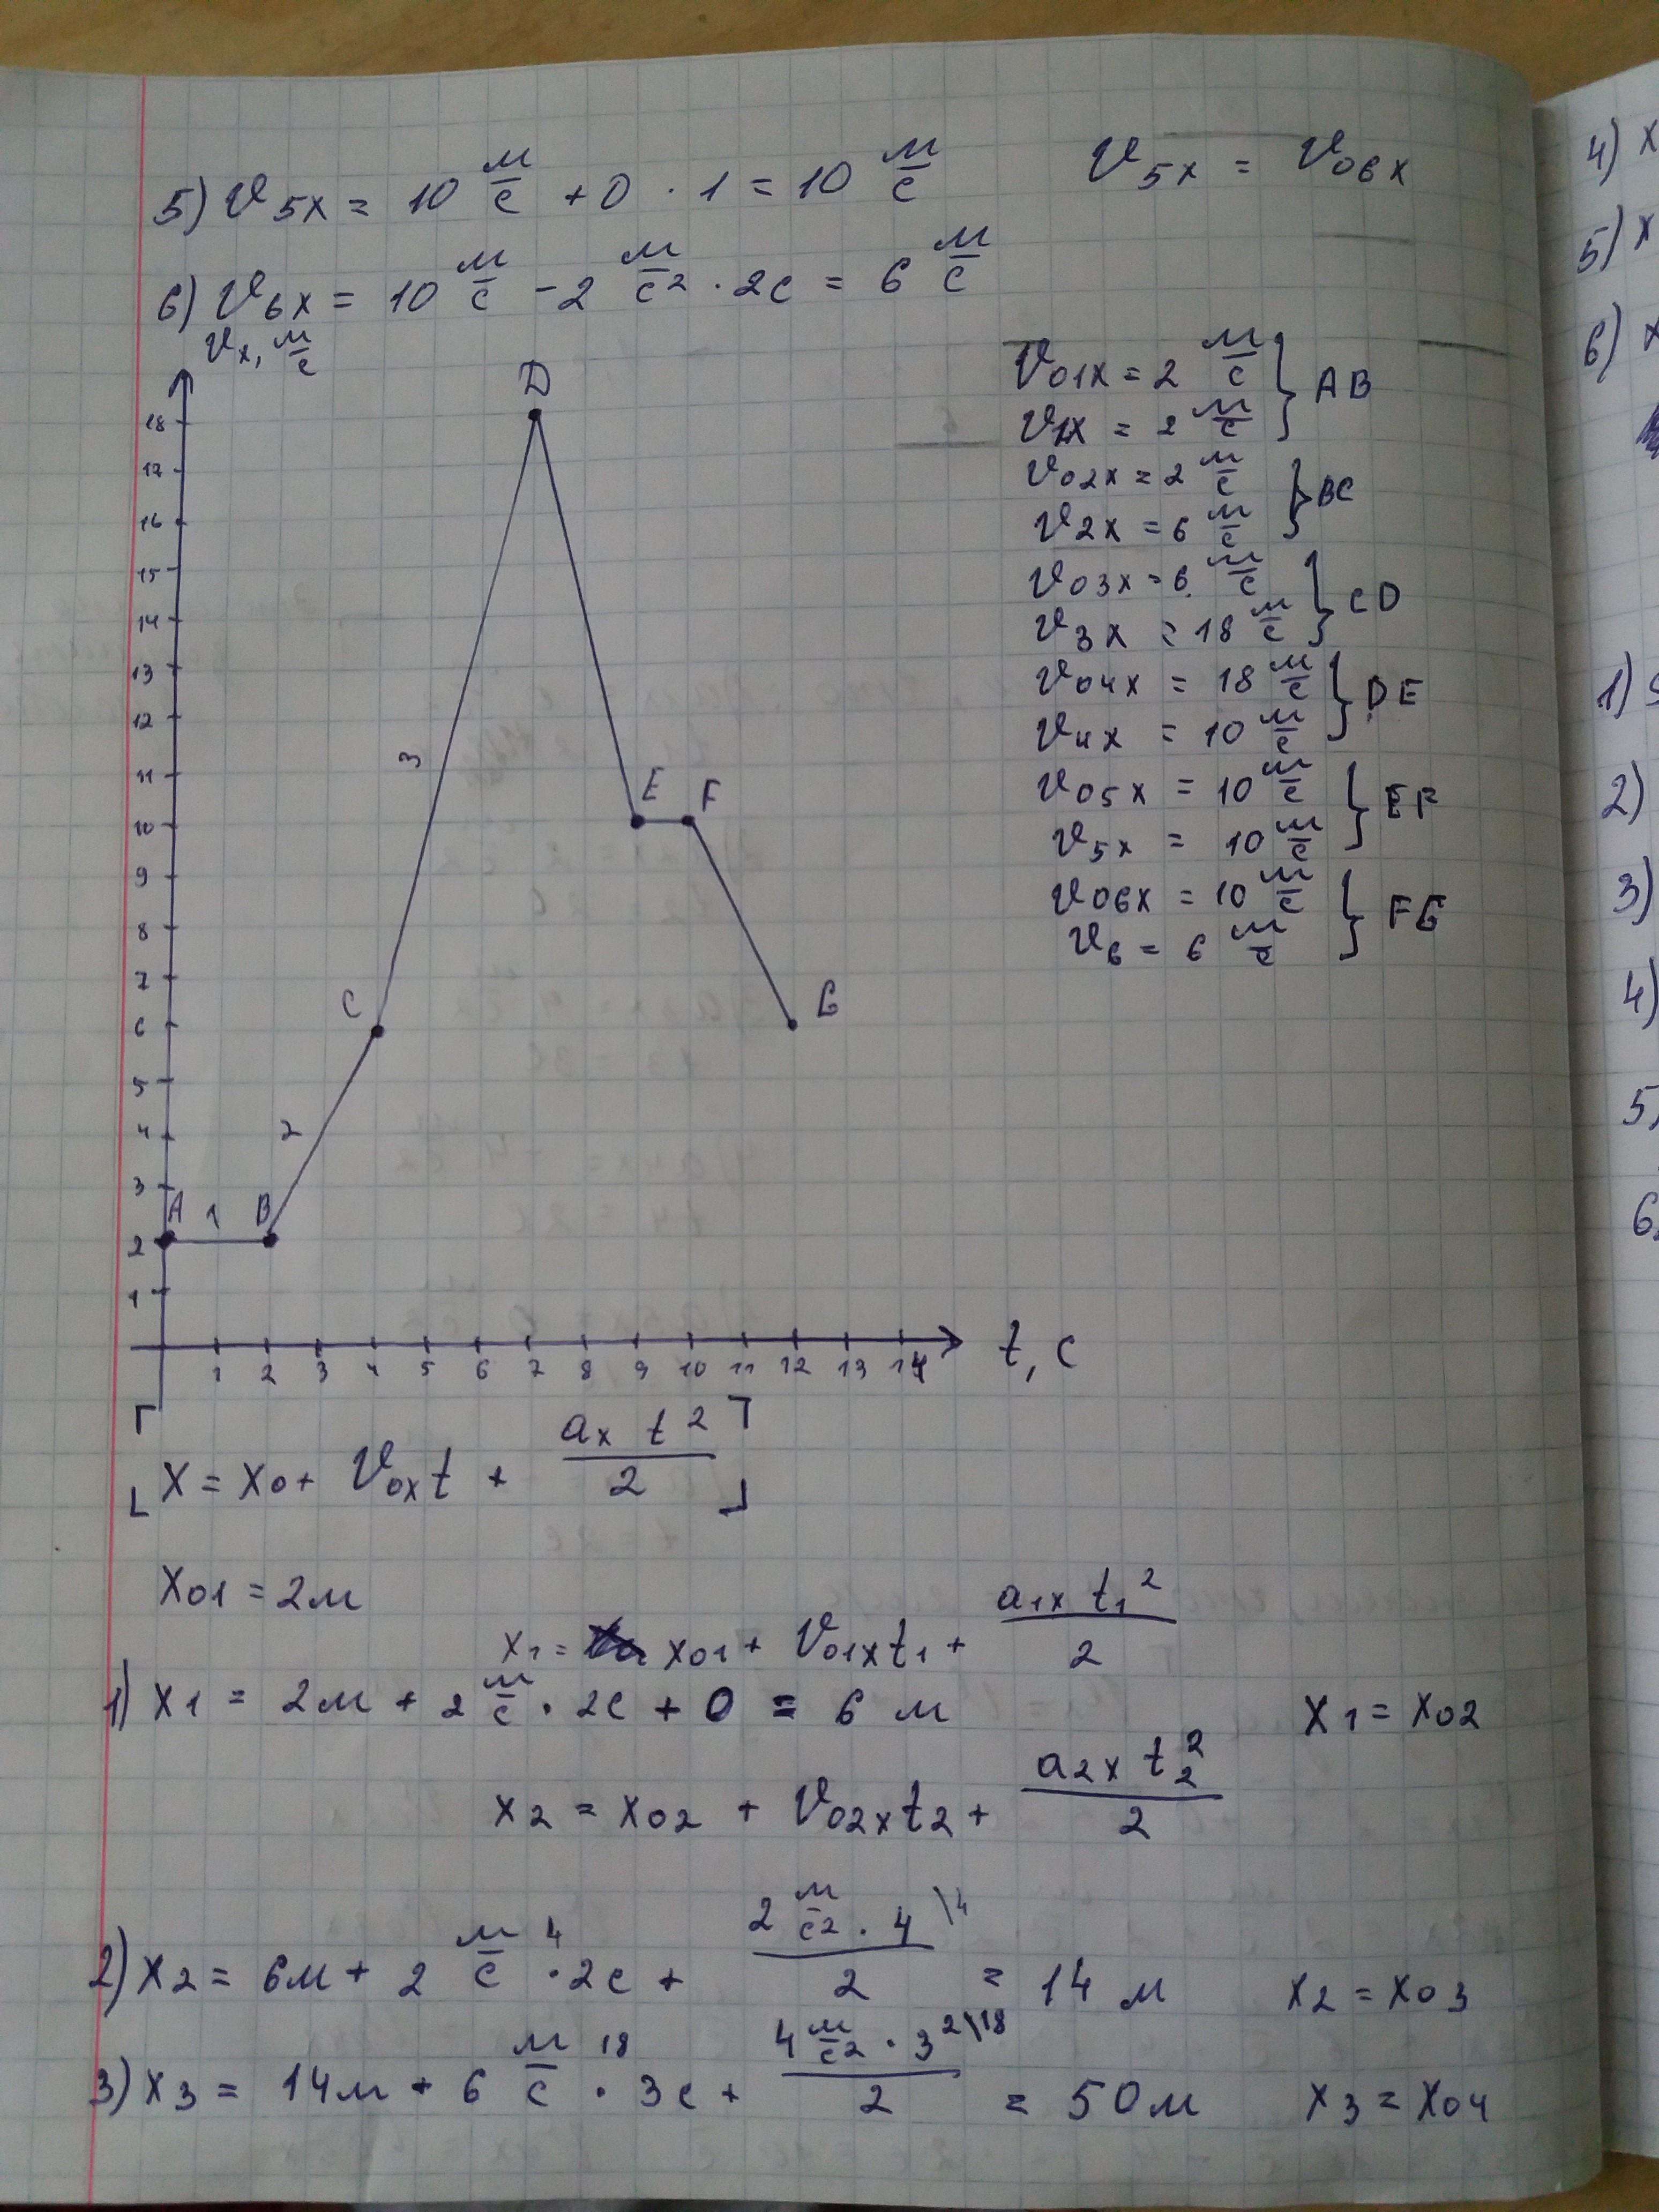 5) v5x = 10 м/с + 0 · 1 = 10 м/с
v5x = v06x
6) v6x = 10 м/с - 2 м/с2 · 2с = 6 м/с
vx, м/с
18
17
16
15
14
13
12
11
10
9
8
7
6
5
4
3
2
1
A 1 B
2
C
3
D
E F
G
1 2 3 4 5 6 7 8 9 10 11 12 13 14
t, с
v01x = 2 м/с } AB
v1x = 2 м/с
v02x = 2 м/с } BC
v2x = 6 м/с
v03x = 6 м/с } CD
v3x = 18 м/с
v04x = 18 м/с } DE
v4x = 10 м/с
v05x = 10 м/с } EF
v5x = 10 м/с
v06x = 10 м/с } FG
v6 = 6 м/с
x = x0 + v0xt + ax t²/2
x01 = 2м
x1 = x01 + v01xt1 + a1x t1²/2
1) x1 = 2м + 2 м/с · 2с + 0 = 6 м
x1 = x02
x2 = x02 + v02xt2 + a2x t2²/2
2) x2 = 6м + 2 м/с · 2с \4 + 2 м/с2 · 4/2 \4 = 14 м
x2 = x03
3) x3 = 14м + 6 м/с · 3с \18 + 4 м/с2 · 3²/2 \18 = 50м
x3 = x04
4) x
5) x
6) x
1)
2)
3)
4)
5)
6)